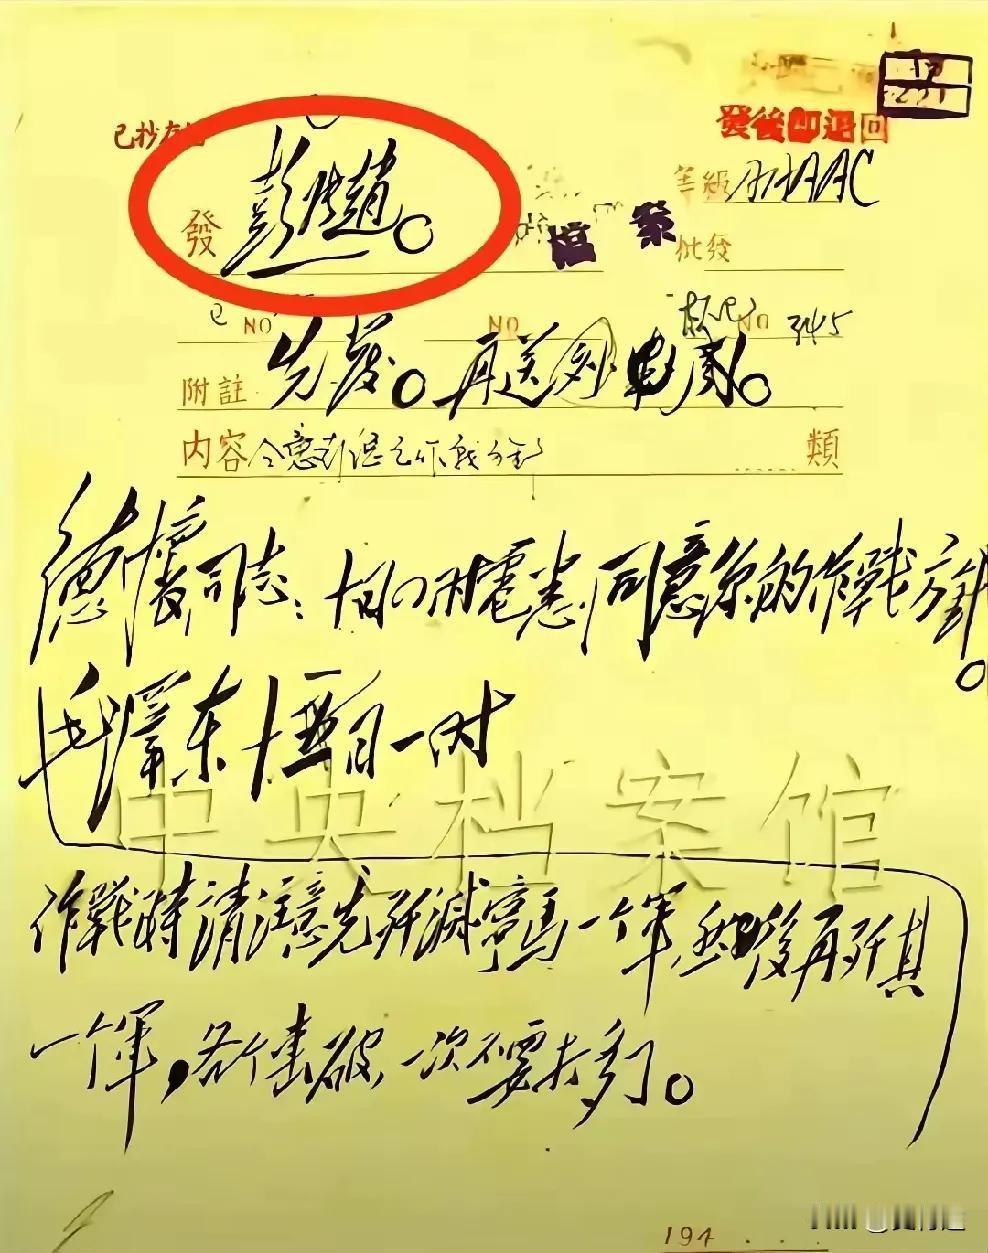 發後即退回
已抄
等級 AAAAC
發 彭张赵。
檔案
批發
NO NO NO 3145
附註 先发。再送刘、周。
内容 類
德懷同志：十四日八时電悉，同意你的作戰方針。
毛澤东 十五日一时
中央档案馆
作戰時請注意先歼滅寧马一个軍，然後再歼其
一个軍，各个击破，一次不要打多了。
194